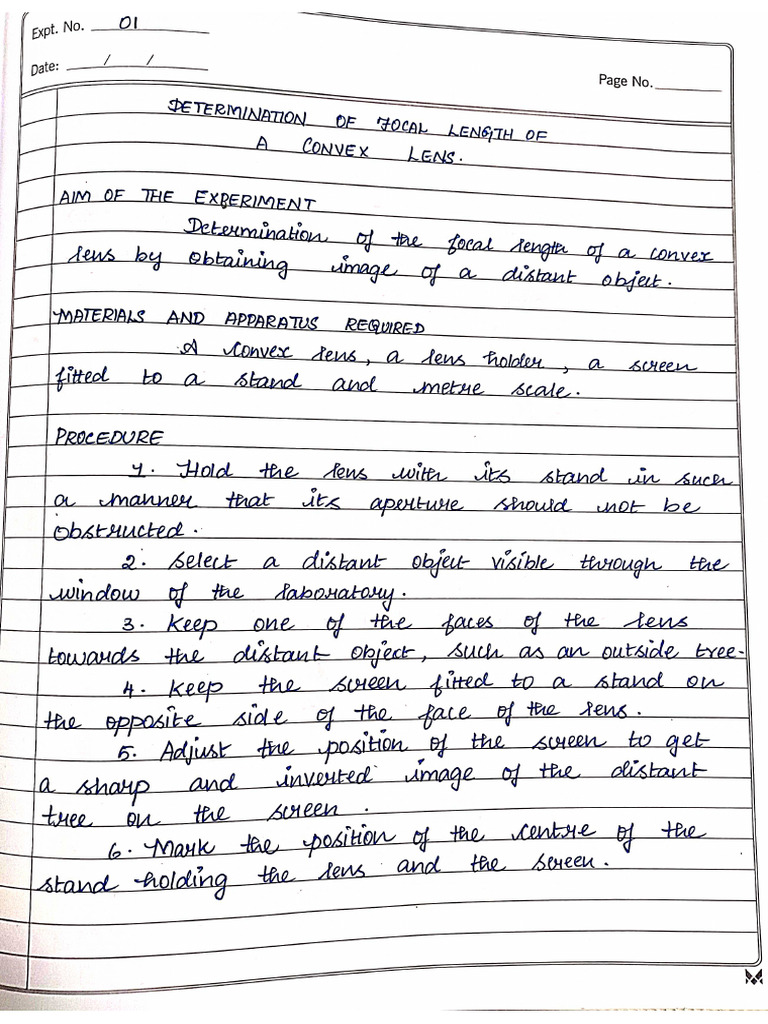 Expt. No. 01
Date: / /
Page No.
DETERMINATION OF FOCAL LENGTH OF
A CONVEX LENS.
AIM OF THE EXPERIMENT
Determination of the focal length of a convex
lens by obtaining image of a distant object.
MATERIALS AND APPARATUS REQUIRED
A convex lens, a lens holder, a screen
fitted to a stand and metre scale.
PROCEDURE
1. Hold the lens with its stand in such
a manner that its aperture should not be
obstructed.
2. Select a distant object visible through the
window of the laboratory.
3. Keep one of the faces of the lens
towards the distant object, such as an outside tree.
4. Keep the screen fitted to a stand on
the opposite side of the face of the lens.
5. Adjust the position of the screen to get
a sharp and inverted image of the distant
tree on the screen.
6. Mark the position of the centre of the
stand holding the lens and the screen.